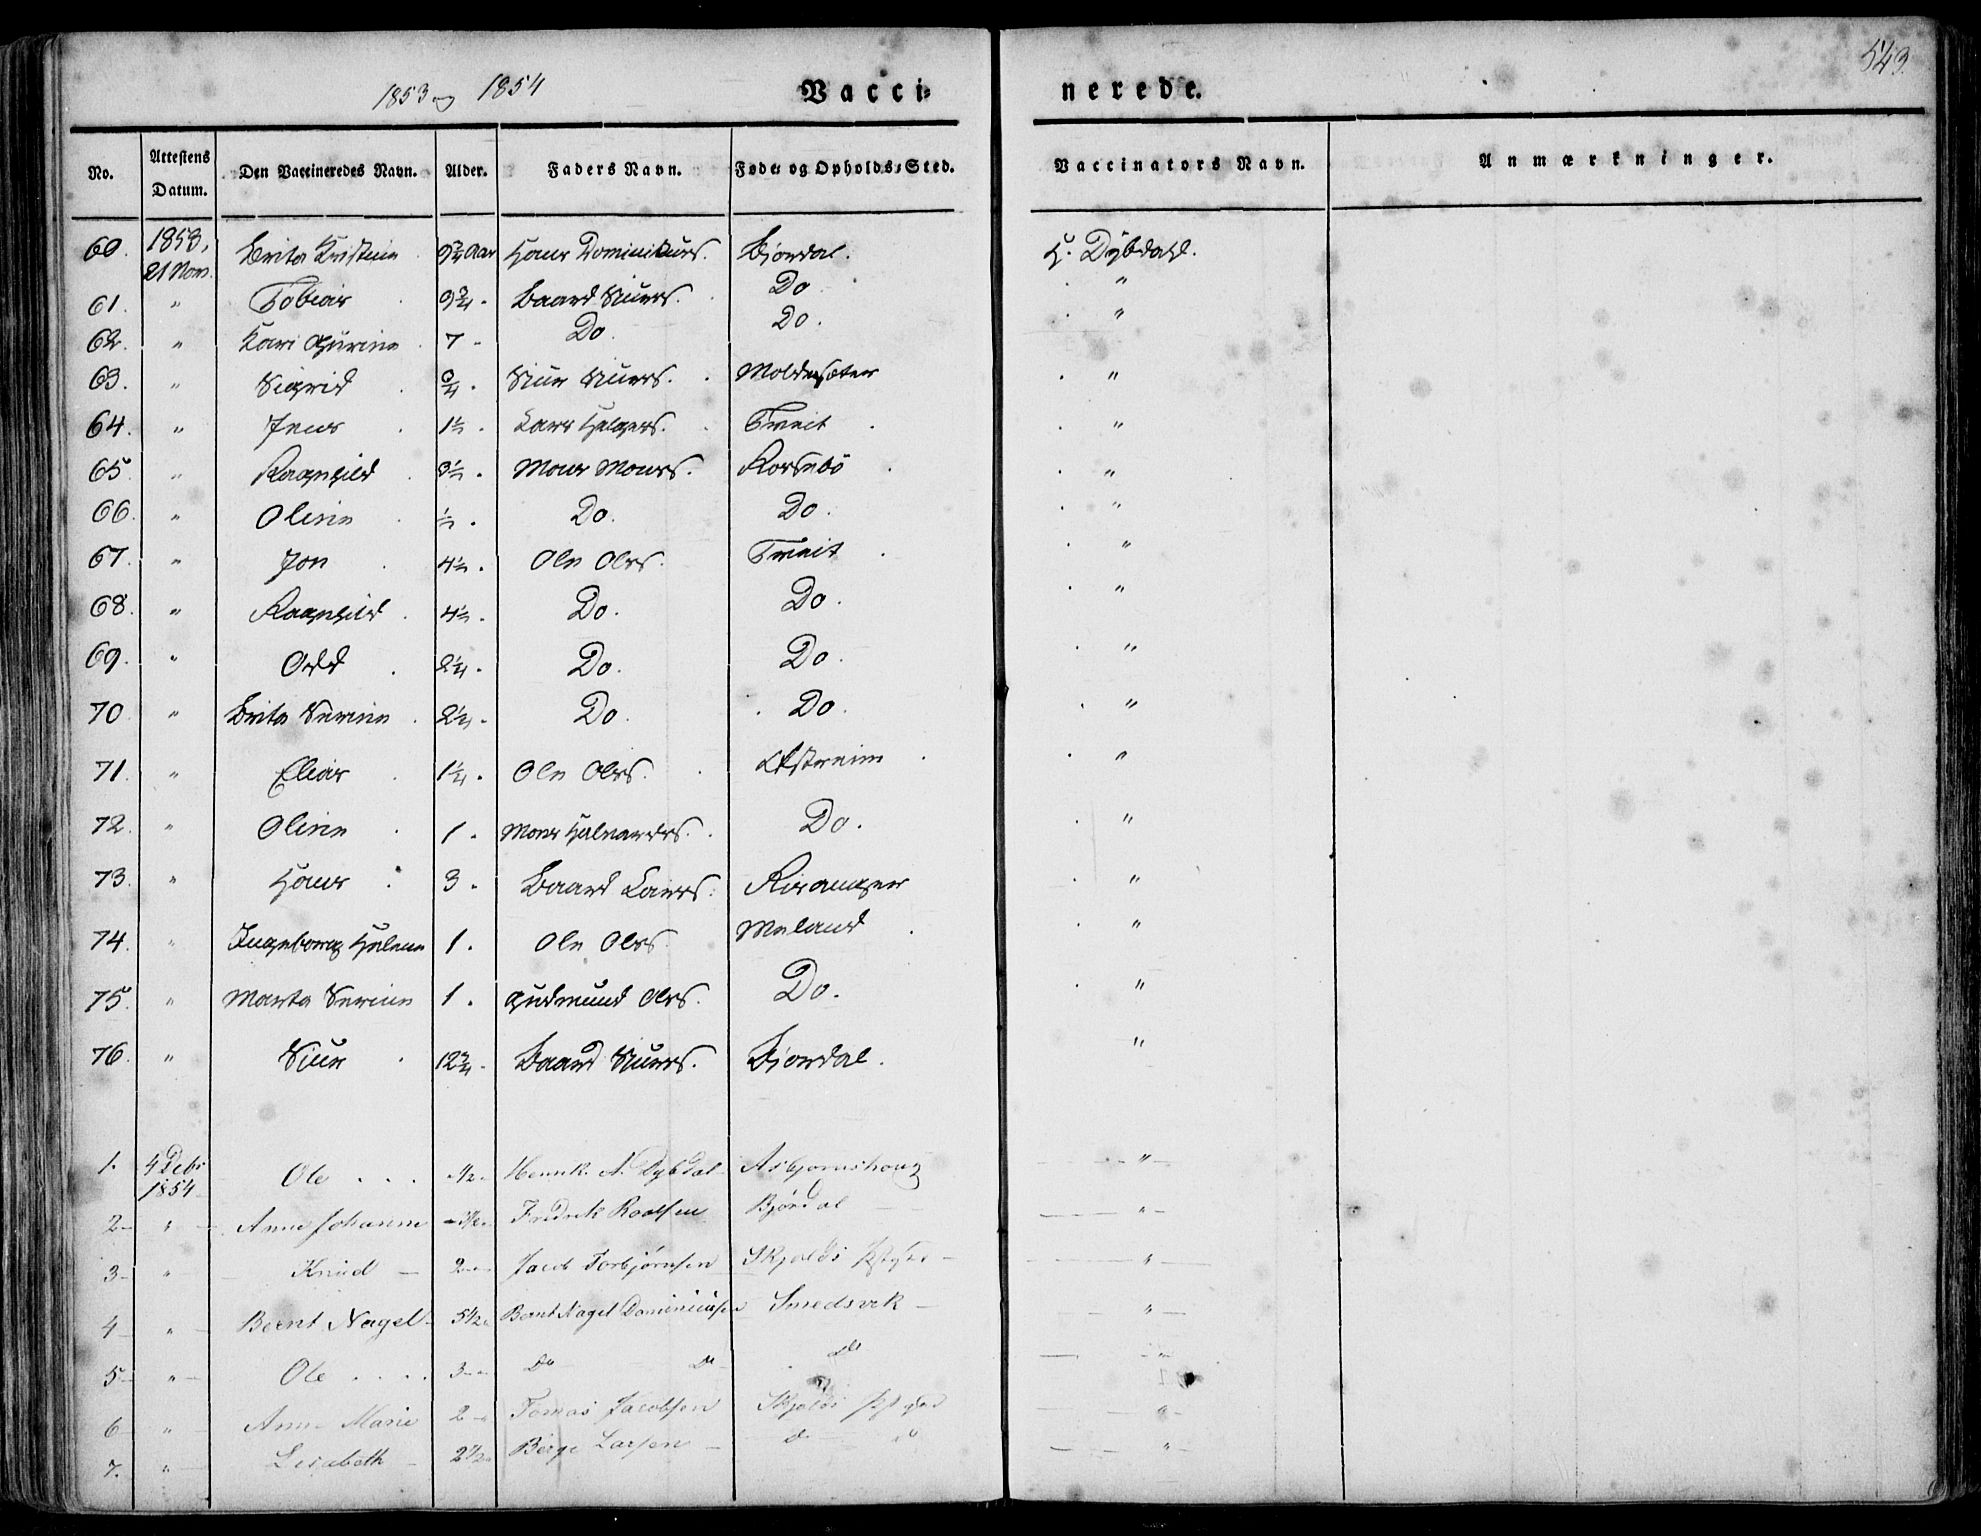 543.
1853 og 1854 Vacci- nerede.
No. Attestens Datum. Den Vaccineredes Navn. Alder. Faders Navn. Føde- og Opholds-Sted. Vaccinators Navn. Anmærkninger.
60. 1853, 21 Nov. Brita Kristine 9 3/4 Aar Hans Dominikuss. Bjordal. H. Dybdahl.
61. " Tobias 9 3/4. Baard Siurs. Do "
62. " Kari Gurine 7 Do. Do. "
63. " Sigrid 3/4. Siur Siurs. Moldesæter "
64. " Jens 1 1/2. Lars Helges. Tveit "
65. " Ragnhild 3 1/2. Mons Monss. Korsebø "
66. " Oline 1/2. Do. Do. "
67. " Jon 4 1/2. Ole Oles. Tveit "
68. " Ragnhild 4 1/2. Do. Do. "
69. " Odd 2 1/4. Do. Do. "
70. " Brita Serine 2 1/4. Do. Do. "
71. " Elias 1 1/4. Ole Oles. Østreim "
72. " Oline 1. Mons Halvards. Do. "
73. " Hans 3. Baard Larss. Risanger "
74. " Ingeborg Helene 1. Ole Oles Meland "
75. " Marta Serine 1. Gudmund Oles. Do. "
76. " Siur 12 3/4. Baard Siurs. Bjordal. "
1. 4 Debr 1854 Ole . . . 1/2 Henrik A. Dybdal Asbjornshoug "
2 " Anne Johanne 1/2 Fredrik Roalsen Björdal "
3 " Knud 2 Jacob Torbjörnsen Skjolds Pstgrd "
4 " Bernt Nagel 5 1/2 Bernt Nagel Dominicusen Smedsvik "
5 " Ole . . . . 3 Do Do Do "
6 " Anne Marie 2 Tomas Jacobsen Skjolds Pstgrd "
7. " Lisabeth 2 1/2 Börge Larsen do do "